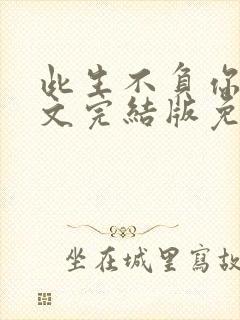 此生不負你
文完結版免
坐在城里寫故